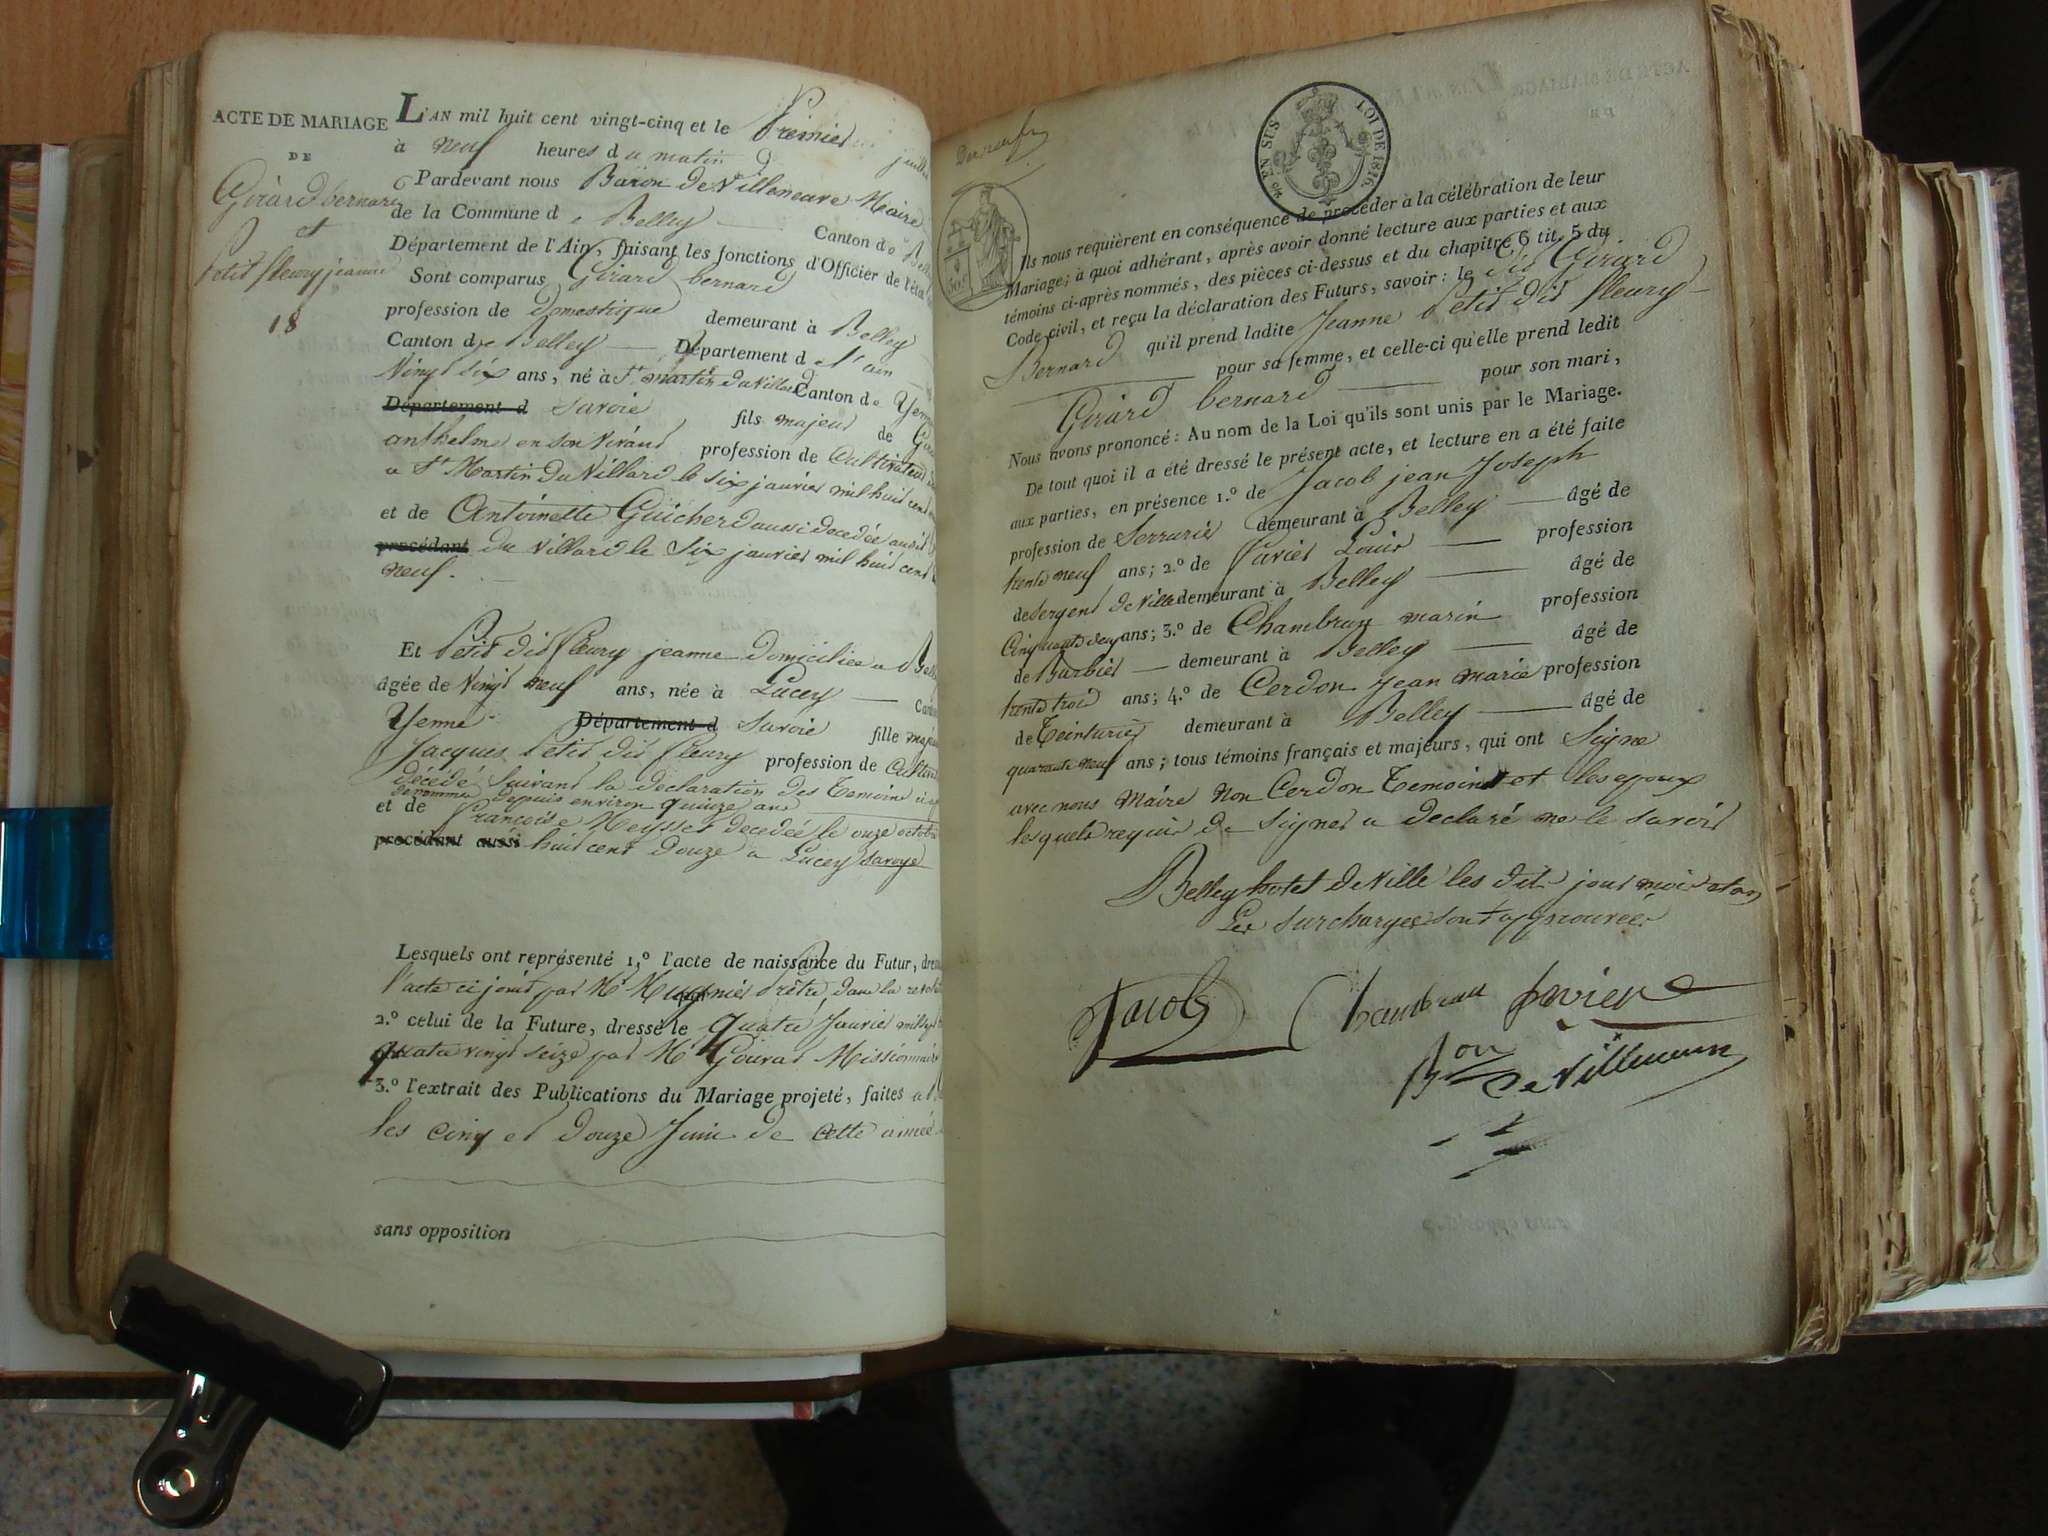 ACTE DE MARIAGE
DE
Girard bernard
et
Petit fleury jeanne
18
L'AN mil huit cent vingt-cinq et le Premier juillet
à neuf heures du matin
Pardevant nous Baron de Villeneuve Maire
de la Commune de Belley Canton de Belley
Département de l'Ain, faisant les fonctions d'Officier de l'état
Sont comparus Girard bernard
profession de domestique demeurant à Belley
Canton de Belley Département de l'ain
Vingt six ans, né à St martin du Villard Canton de Yenne
Département d Savoie fils majeur de
anthelme en son vivant profession de Cultivateur
a St Martin du Villard le six janvier mil huit cent
et de Antoinette Guicherd aussi decedée audit
procédant du Villard le Six janvier mil huit cent
neuf.
Et Petit dit fleury jeanne domiciliée a Belley
âgée de Vingt neuf ans, née à Lucey
Yenne Département d Savoie fille majeure
Jacques Petit dit fleury profession de
décédé suivant la declaration des Temoins
denommés depuis environ quinze ans
et de Françoise Meysset decedée le onze octobre
procédant aussi huit cent douze a Lucey Savoye
Lesquels ont représenté 1.º l'acte de naissance du Futur,
l'acte ci joint par Mr Mugnier Prêtre, dans la
2.º celui de la Future, dressé le quatre Janvier
quatre vingt seize par Mr Gouvat Missionnaire
3.º l'extrait des Publications du Mariage projeté, faites a
les cinq et douze Juin de cette année
sans opposition
LOI DE 1816
EN SUS
Ils nous requièrent en conséquence de procéder à la célébration de leur
Mariage; à quoi adhérant, après avoir donné lecture aux parties et aux
témoins ci-après nommés, des pièces ci-dessus et du chapitre 6 tit. 5 du
Code civil, et reçu la déclaration des Futurs, savoir: le dit Girard
Bernard qu'il prend ladite Jeanne Petit dit fleury
pour sa femme, et celle-ci qu'elle prend ledit
Girard bernard pour son mari,
Nous avons prononcé: Au nom de la Loi qu'ils sont unis par le Mariage.
De tout quoi il a été dressé le présent acte, et lecture en a été faite
aux parties, en présence 1.º de Jacob jean Joseph
profession de Serrurier demeurant à Belley âgé de
trente neuf ans; 2.º de Pavier Louis profession
de Sergent de Ville demeurant à Belley âgé de
Cinquante deux ans; 3.º de Chambrun marin profession
de Barbier demeurant à Belley âgé de
trente trois ans; 4.º de Cerdon Jean Marie profession
de Teinturier demeurant à Belley âgé de
quarante neuf ans; tous témoins français et majeurs, qui ont Signé
avec nous Maire Non Cerdon Temoin et les epoux
lesquels requis de signer a declaré ne le savoir
Belley hotel de Ville les dit jour mois et an
Les surcharges sont approuvées
Jacob Chambrun Pavier
Bon de Villeneuve